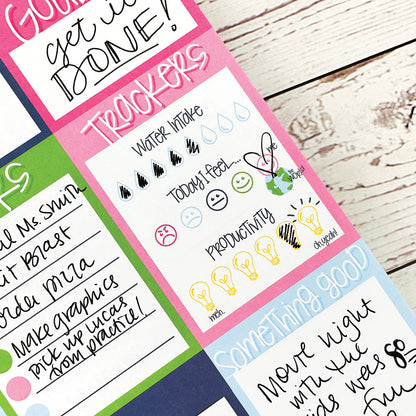 get it
DONE!
TRACKERS
WATER INTAKE
TODAY I FEEL...
PRODUCTIVITY
meh.
oh yeah!
Ms. Smith
Blast
order pizza
Make graphics
pick up lucas
from practice!
SOMETHING GOOD
Movie night
with the
kids was